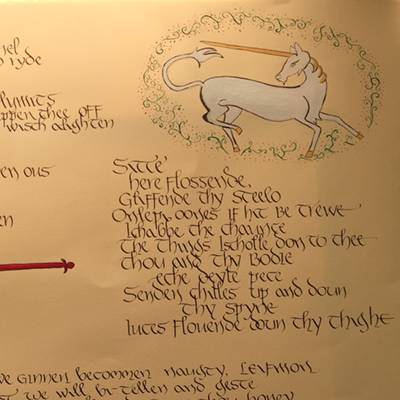 ryde
lymits
thee off
wisch alighten
en ous
en
Sitte'
here flossende,
Glyffende thy steelo
oones If hit Be trewe'
Ichabbe the chaunce
The things Ischolle don to thee
thou and thy Bodie
eche deyle pece
Senden chilles up and doun
thy spyne
iuces flouende doun thy thighe
we ginnen becommen naughty, Lefmon
we will bi-tellen and geste
honey